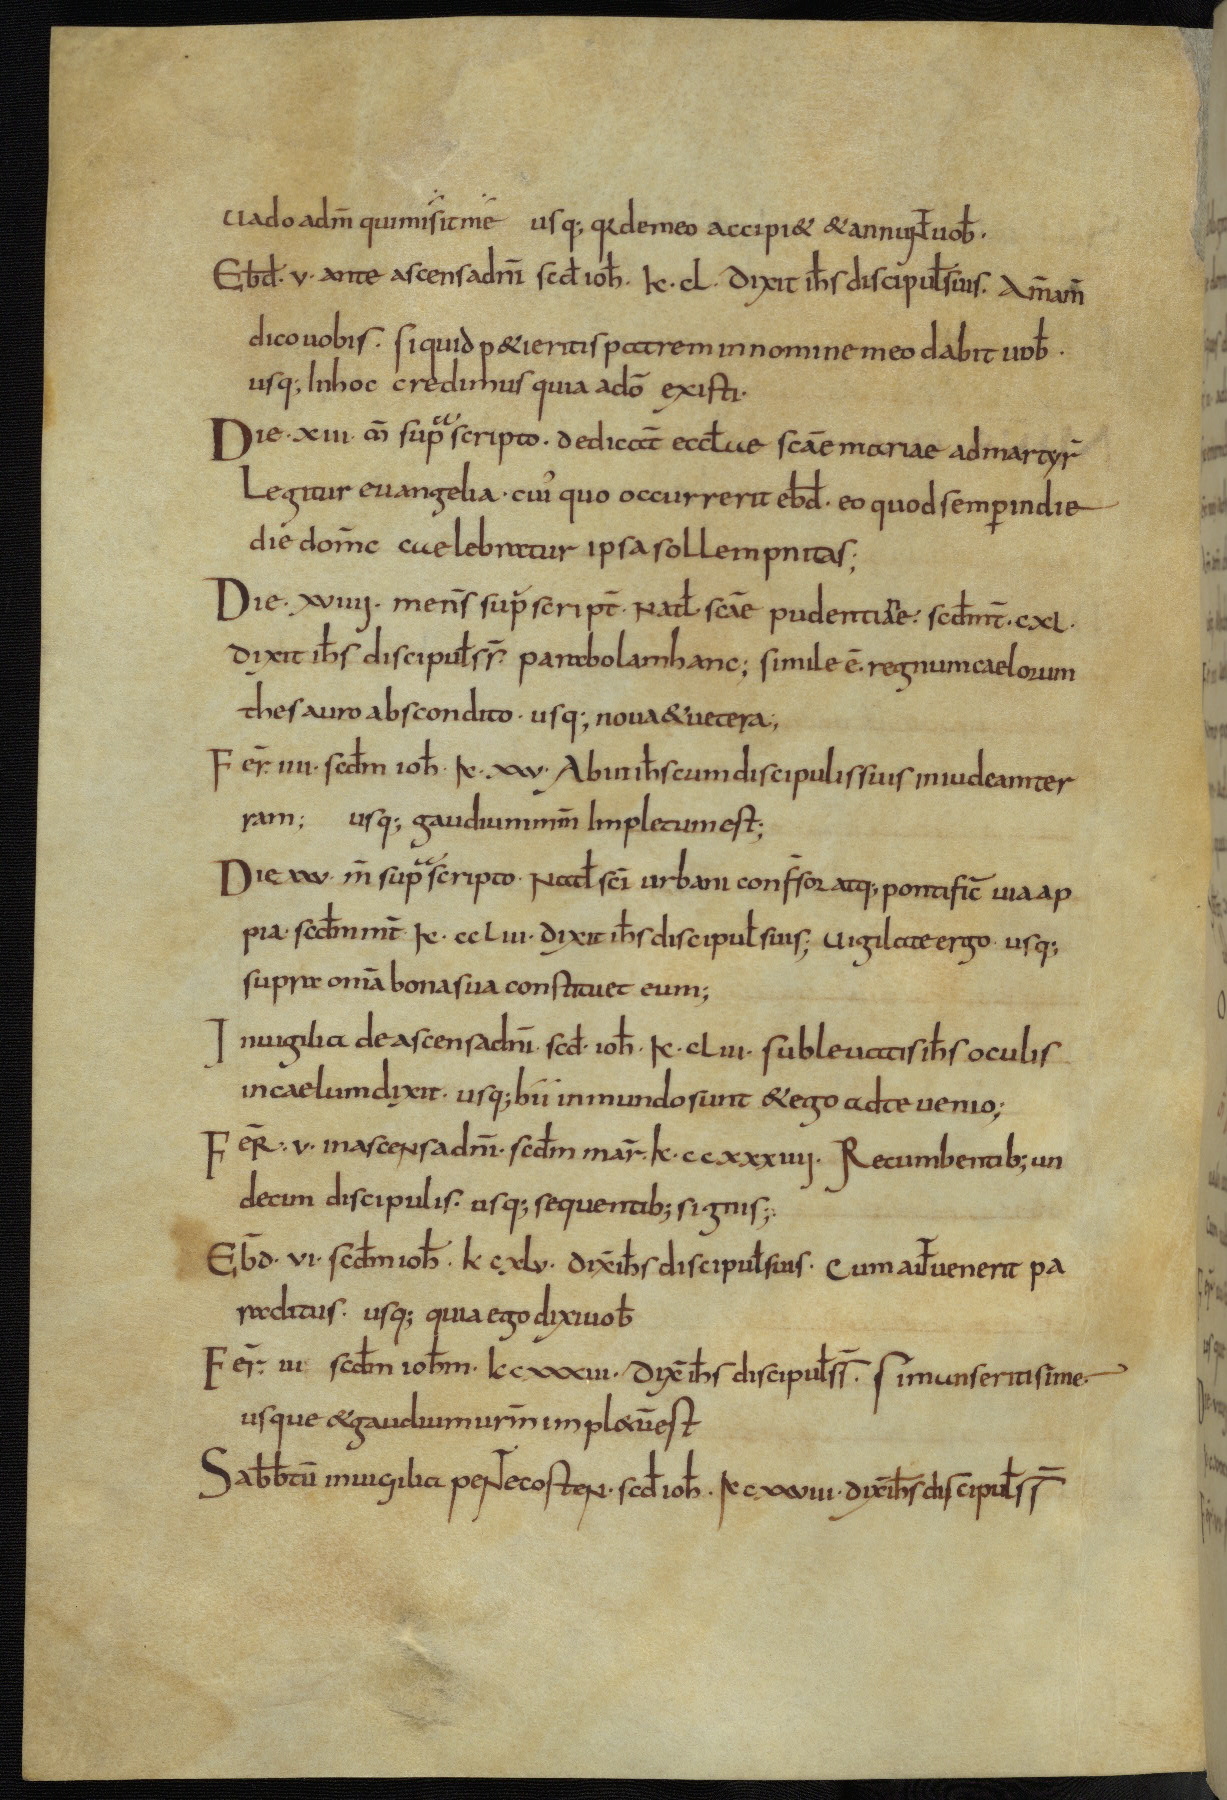 uado adm̄ qui misit me usq; qr̄ de meo accipi& & annunt̄ uob̄.
Ebd̄. v. ante ascens adn̄i scd̄ ioh̄. k. cl. Dixit ih̄s discipul̄ suis. Am̄ am̄
dico uobis. si quid p&ieritis patrem in nomine meo dabit uob̄.
usq; In hoc credimus quia a dō existi.
Die. xiii. m̄ sup̄scripto. dedicat̄ eccl̄ae scāe mariae ad martyr̄
Legitur euangelia. cui' quo occurrerit ebd̄. eo quod semper in die
die dom̄c caelebratur ipsa sollempnitas;
Die. xviiii. mens̄ sup̄script̄. Natl̄ scāe pudentiae. scd̄ mt̄. cxl.
Dixit ih̄s discipul̄ ss̄. parabolam hanc; simile ē. regnum caelorum
thesauro abscondito. usq; noua & uetera;
Fer̄. iiii. scd̄m ioh̄. k. xxv. Abiit ih̄s cum discipulis suis in iudeam ter
ram; usq; gaudium mm̄ Impletum est;
Die xxv. m̄ sup̄scripto. Natl̄ scī urbani conf̄sor atq; pontific̄ uia ap
pia. scd̄m mt̄ k. cclxii. Dixit ih̄s discipul̄ suis; Uigilate ergo. usq;
supra omīa bona sua constituet eum;
In uigilia de ascensa dn̄i. scd̄. ioh̄. k. cliii. subleuatis ih̄s oculis
in caelum dixit. usq; hii in mundo sunt & ego ad te uenio;
Fer̄. v. in ascensa dn̄i. scd̄m mar̄. k. ccxxxiiii. Recumbentib; un
decim discipulis. usq; sequentib; signis;
Ebd̄. vi. scd̄m ioh̄. k cxlv. dix̄ ih̄s discipul̄ suis. Cum aut̄ uenerit pa
raclitus. usq; quia ego dixi uob̄
Fer̄. iii scd̄m ioh̄m. k cxxxiii. Dix̄ ih̄s discipul̄ ss̄. Si manseritis in me.
usque & gaudium urm̄ impl&ū est
Sabb̄tū in uigilia pentecosten. scd̄ ioh̄. k cxxviii. dix̄ ih̄s discipul̄ ss̄